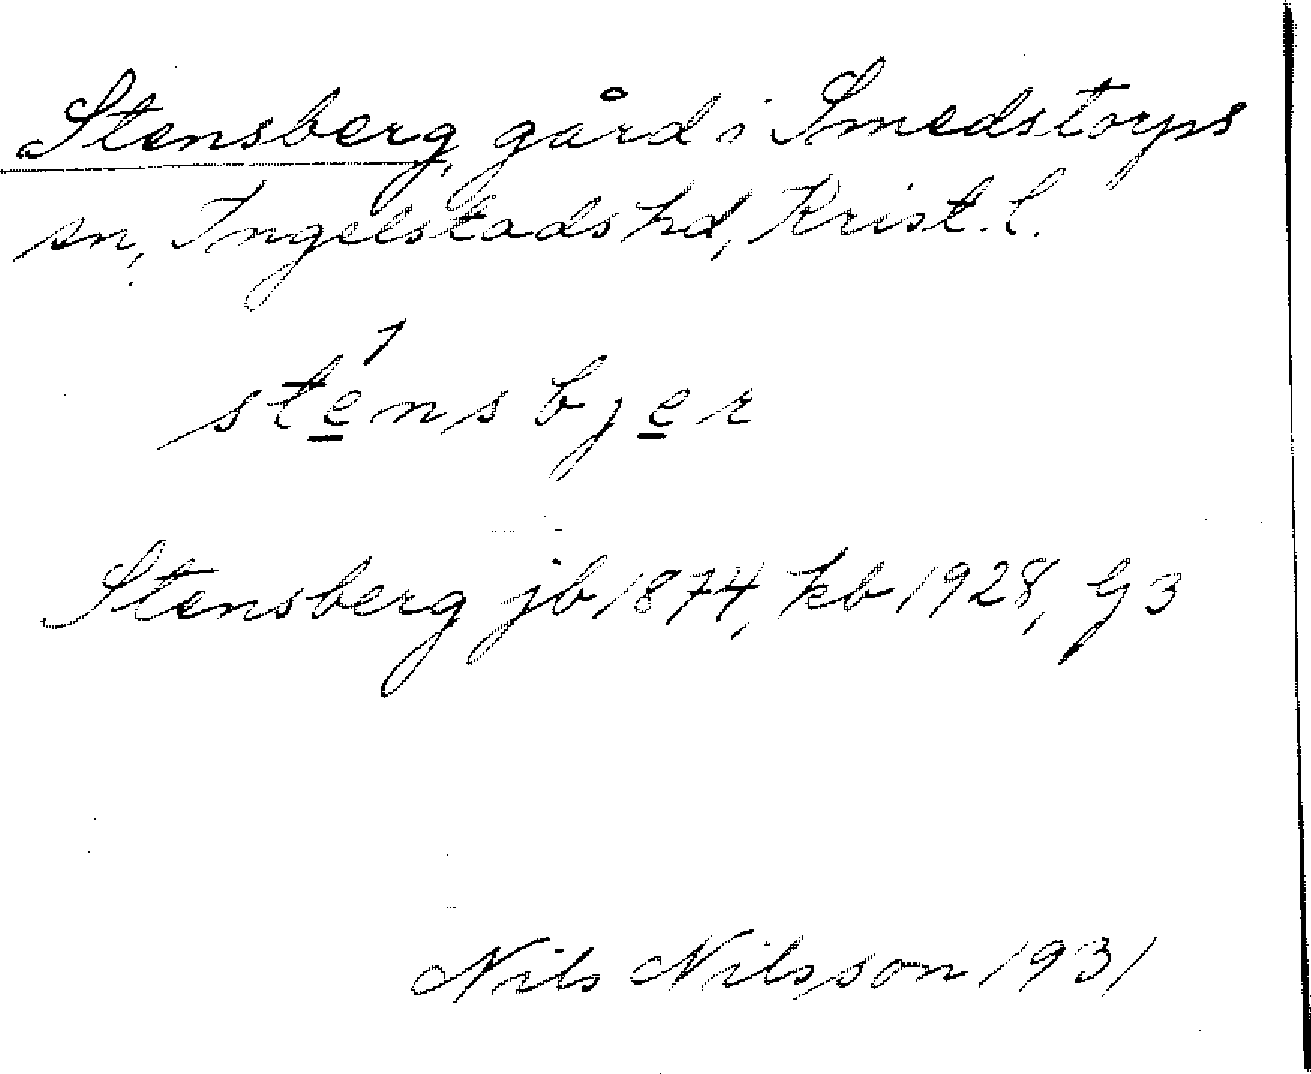 Stensberg, gård i Smedstorps
sn, Ingelstads hd, Krist. l.
ste̲´nsbje̲r
Stensberg jb 1874, kb 1928, G3
Nils Nilsson 1931